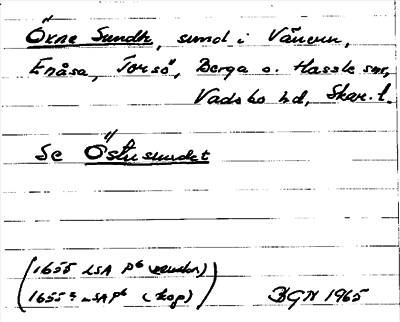 Öxne Sundh, sund i Vänern,
Enåsa, Torsö, Berga o. Hassle snr,
Vadsbo hd, Skar. l.
Se Östersundet
(1655 LSA P6
1655 : LSA P6 (kop))
BGN 1965